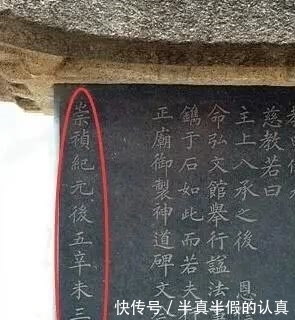 慈教若曰
主上入承之後 恩
命弘文館舉行諡法
鐫于石如此而若夫
正廟御製神道碑文
崇禎紀元後五辛未三
快传号/半真半假的认真